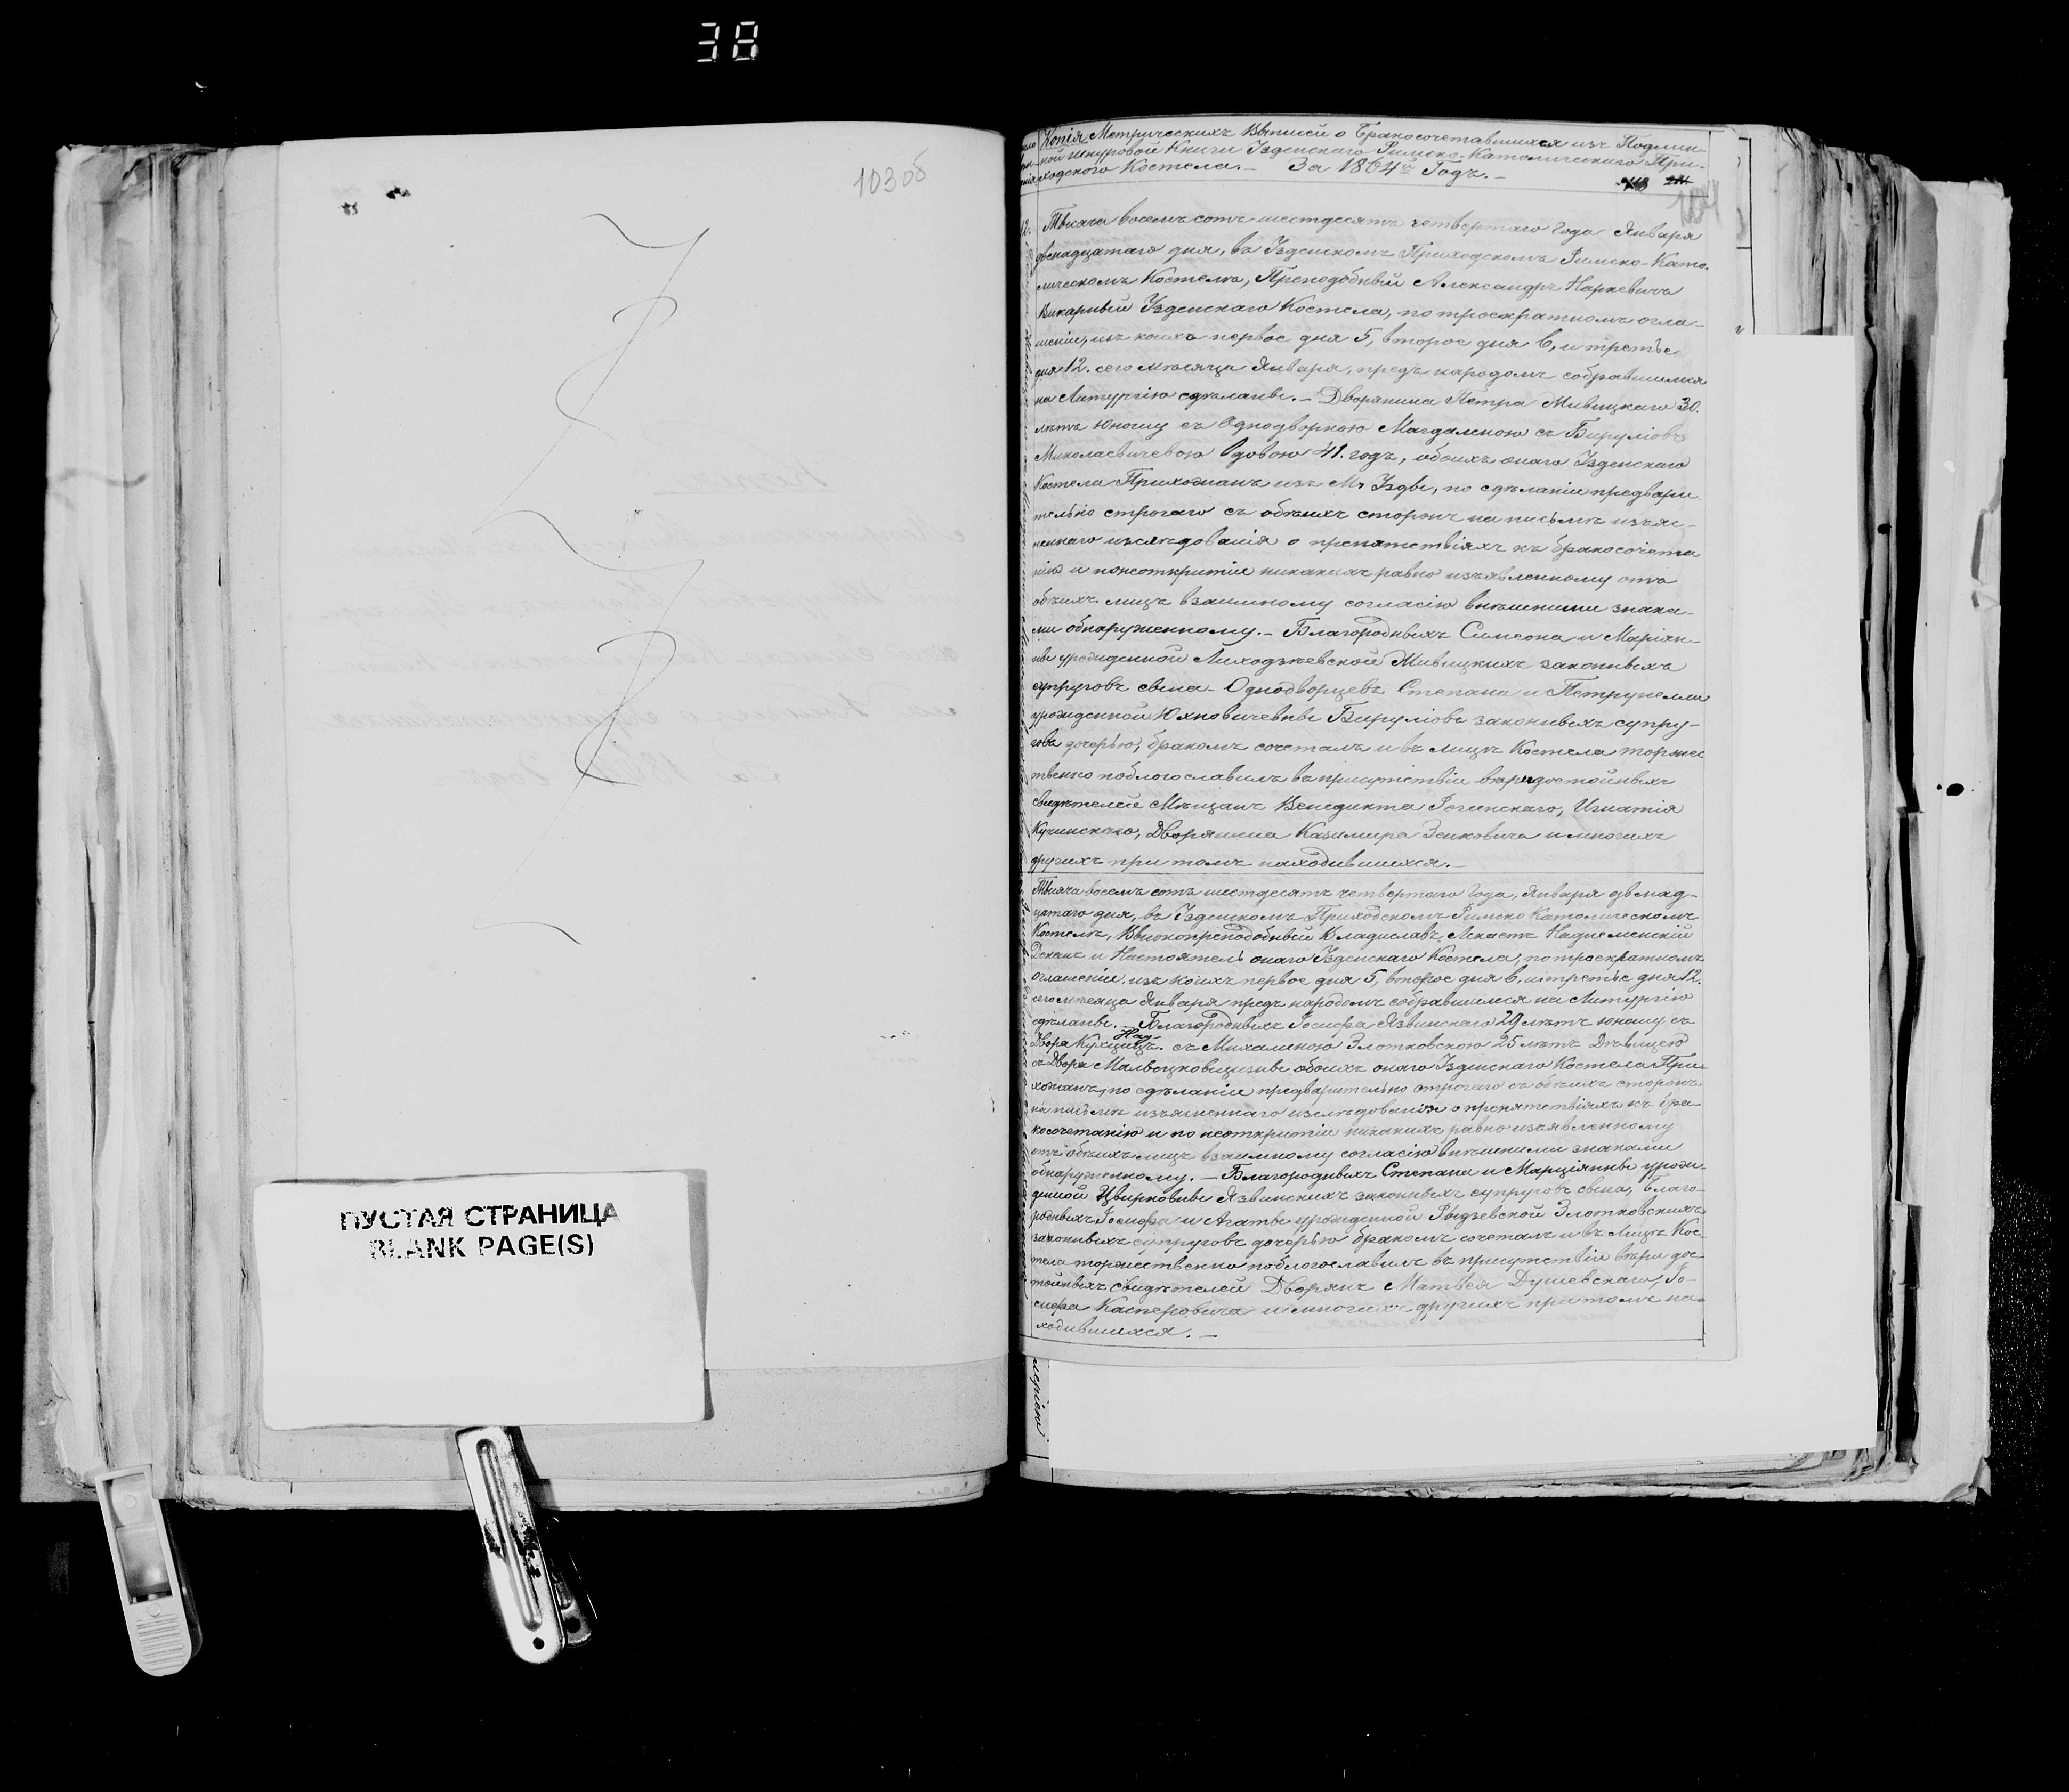 38
103об
ПУСТАЯ СТРАНИЦА
BLANK PAGE(S)
Копія Метрическихъ Выписей о Бракосочетавшихся изъ Подлин-
ной шнуровой Книги Узденскаго Римско-Католическаго При-
ходского Костела. — За 1864й Годъ. —
104
12.
Тысяча восемь сотъ шестдесятъ четвертаго Года Января
двенадцатаго дня, въ Узденскомъ Приходскомъ Римско-Като-
лическомъ Костелѣ, Преподобный Александръ Наркевичъ
Викарный Узденскаго Костела, по троекратномъ огла-
шеніи, изъ коихъ первое дня 5, второе дня 6, и третье
дня 12. сего мѣсяца Января, предъ народомъ собравшимся
на Литургію сдѣланы. — Дворянина Петра 30.
лѣтъ юношу съ Однодворкою Магдаленою съ Бируліовъ
Миколаевичевою вдовою 41. годъ, обоихъ онаго Узденскаго
Костела Прихожанъ изъ М. Узды, по сдѣланіи предвари-
тельно строгаго съ обѣихъ сторонъ на письмѣ изъяс-
неннаго изслѣдованія о препятствіяхъ къ бракосочета
нію и понеоткрытіи никакихъ равно изъявленному отъ
обѣихъ лицъ взаимному согласію внѣшними знака-
ми обнаруженному. — Благородныхъ Симеона и Маріян-
ны урожденной законныхъ
супруговъ сына — Однодворцевъ Степана и Петрунелли
урожденной Юхновичевны Бируліовъ законныхъ супру-
говъ дочерью, бракомъ сочеталъ и въ лицѣ Костела торжес
твенно поблогославилъ въ присутствіи вѣридостойныхъ
свидѣтелей Мѣщанъ Венедикта Рогинскаго, Игнатія
Кучинскаго, Дворянина Казимира Зенковича и многихъ
другихъ при томъ находившихся. —
Тысяча восемь сотъ шестдесятъ четвертаго Года, Января двенад-
цатаго дня, въ Узденскомъ Приходскомъ Римско Католическомъ
Костелѣ, Высокопреподобный Владиславъ Наднеменскій
Деканъ и Настоятель онаго Узденскаго Костела, по троекратномъ
оглашеніи, изъ коихъ первое дня 5, второе дня 6. и третье дня 12.
сего мѣсяца Января предъ народомъ собравшимся на Литургію
сдѣланы. — Благородныхъ Іосифа Язвинскаго 29 лѣтъ юношу, съ
Двора съ Михалиною Злотковскою 25 лѣтъ Дѣвицею
съ Двора обоихъ онаго Узденскаго Костела При-
хожанъ, по сдѣланіи предварительно строгаго съ обѣихъ сторонъ
на письмѣ изъясненнаго изслѣдованія о препятствіяхъ къ бра-
косочетанію и по неоткрытіи никакихъ равно изъявленному
отъ обѣихъ лицъ взаимному согласію внѣшними знаками
обнаруженному. — Благородныхъ Степана и Марціянны урож-
денной Цвирковны Язвинскихъ законныхъ супруговъ сына, Благо-
родныхъ Іосифа и Агаты урожденной Злотковскихъ
законныхъ супруговъ дочерью бракомъ сочеталъ и въ Лицѣ Кос-
тела торжественно поблогославилъ въ присутствіи вѣри дос-
тойныхъ свидѣтелей Дворянъ Матвея Душевскаго, Іо-
сифа Касперовича и многихъ другихъ при томъ на-
ходившихся. —